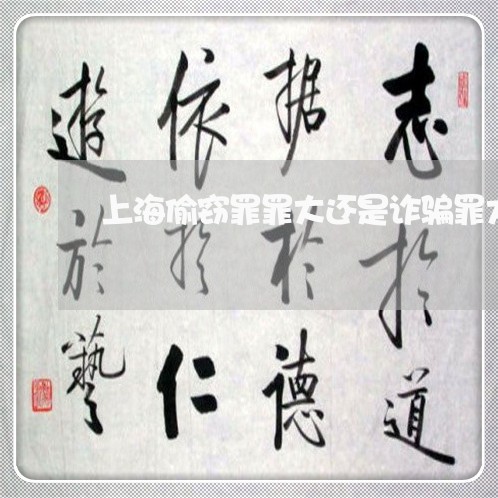 志於道
据於德
依於仁
遊於藝
上海偷窃罪罪大还是诈骗罪